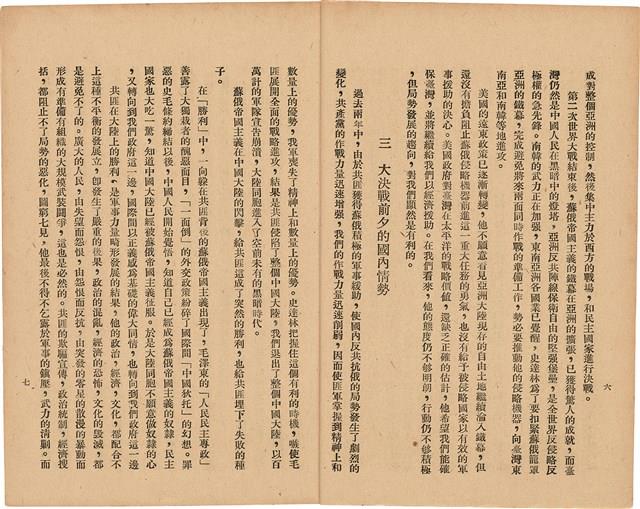 成對整個亞洲的控制，然後集中主力於西方的戰場，和民主國家進行決戰。
第二次世界大戰結束後，蘇俄帝國主義的鐵幕在亞洲的擴張，已獲得驚人的成就，而臺
灣仍然是中國人民在黑暗中的燈塔，亞洲反共陣線保衛自由的堅强堡壘，是全世界反侵略反
極權的急先鋒。南韓的武力正在加强，東南亞各國業已覺醒，史達林爲了要扣緊蘇俄龍罩
亞洲的鐵幕，完成避免將來兩面同時作戰的準備工作，勢必要推動他的侵略機器，向臺灣東
南亞和南韓等地進攻。
美國的遠東政策已逐漸轉變，他不願意看見亞洲大陸現存的自由土地繼續淪入鐵幕，但
還沒有擔負阻止蘇俄侵略機器前進這一重大任務的勇氣，也沒有給予被侵略國家以有效的軍
事援助的決心。美國政府對臺灣在太平洋的戰略價值，還缺乏正確的估計，他希望我們能確
保臺灣，並將繼續給我們以經濟援助。在我們看來，他的態度仍不够明朗，行動仍不够積極
，但局勢發展的趨向，對我們顯然是有利的。
三 大決戰前夕的國內情勢
過去兩年中，由於共匪獲得蘇俄積極的軍事援助，使國內反共抗俄的局勢發生了劇烈的
變化，共產黨的作戰力量迅速增强，我們的作戰力量迅速削弱，因而使匪軍掌握到精神上和
六
數量上的優勢，我軍喪失了精神上和數量上的優勢。史達林把握住這個有利的時機，嗾使毛
匪展開全面的戰略進攻，結果是共匪侵陷了整個中國大陸，我們退出了整個中國大陸，以百
萬計的軍隊宣告崩潰，大陸同胞進入了空前未有的黑暗時代。
蘇俄帝國主義在中國大陸的閃擊，給共匪造成了突然的勝利，也給共匪埋下了失敗的種
子。
在「勝利」中，一向躱在共匪背後的蘇俄帝國主義出現了，毛澤東的「人民民主專政」
善露了大獨裁者的醜惡面目，「一面倒」的外交政策粉碎了國際間「中國狄托」的幻想。罪
惡的史毛條約締結以後，中國人民開始覺悟，知道自己已經成爲蘇俄帝國主義的奴隸，民主
國家也大吃一驚，知道中國大陸已經被蘇俄帝國主義征服。於是大陸同胞不願意做奴隸的心
，又轉向到我們政府這一邊，國際間以正義感爲基礎的偉大同情，也轉向到我們政府這一邊
共匪在大陸上的勝利，是軍事力量畸形發展的結果，他的政治，經濟，文化，都配合不
上這種不平衡的發展，立卽發生了嚴重的後果，政治的混亂，經濟的恐怖，文化的毀滅，都
是避免不了的。廣大的人民，由失望而怨恨，由怨恨而反抗，由突發的零星的散漫的暴動而
形成有準備有組織的大規模武裝鬪爭，這也是必然的。共匪的欺騙宣傳，政治統制，經濟搜
括，都阻止不了局勢的惡化，圖窮匕見，他最後不得不乞靈於軍事的鎭壓，武力的淸剿。而
七